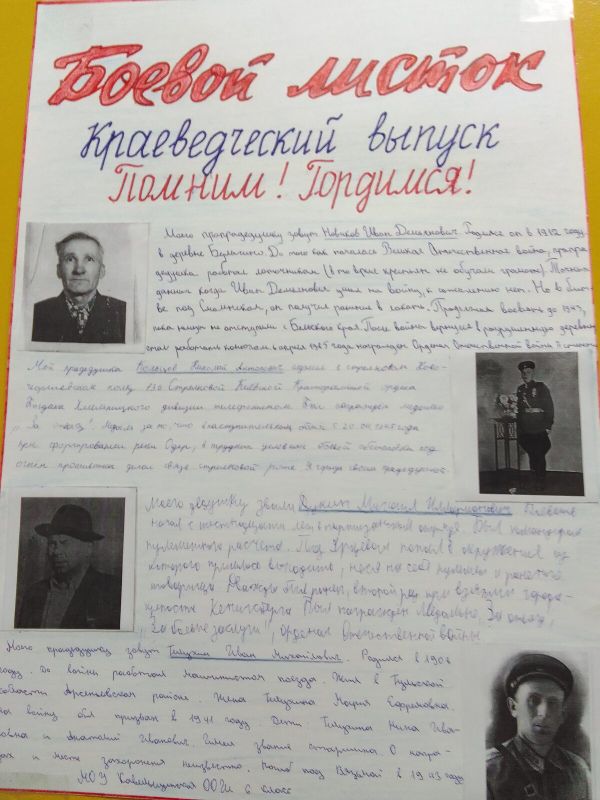 Боевой листок
Краеведческий выпуск
Помним! Гордимся!
Моего прапрадедушку зовут Новиков Иван Демьянович. Родился он в 1912 году
в деревне До того как началась Великая Отечественная война, прапра-
дедушка работал (в то время крестьян не обучали грамоте). Точных
данных когда Иван Демьянович ушел на войну, к сожалению нет. Но в бит-
ве под Смоленском, он получил ранение в локоть. Продолжал воевать до 1943,
пока немцы не отступили с Бельского края. После войны вернулся в разрушенную деревню
стал работать конюхом. 6 апреля 1985 года награжден Орденом Отечественной войны II степени
Мой прадедушка Николай Антонович служил в стрелковом
полку 130 Стрелковой Киевской Краснознаменной ордена
Богдана Хмельницкого дивизии телефонистом. Был награжден медалью
"За отвагу". Медаль за то, что в наступательном бою с 20 1945 года
при форсировании реки Одер, в трудных условиях боевой обстановки под
огнем противника делал связь стрелковой роте. Я горжусь своим прадедушкой.
Моего дедушку звали Михаил Илларионович. Воевать
начал с шестнадцати лет в партизанском отряде. Был командиром
пулеметного расчета. Под попал в окружение из
которого пришлось выходить, неся на себе пулемет и раненого
товарища. Дважды был ранен, второй раз при взятии города-
крепости Кенигсберга. Был награжден Медалью "За отвагу",
"За боевые заслуги", орденом Отечественной войны.
Моего прадедушку зовут Тишукин Иван Михайлович. Родился в 1906
году. До войны работал машинистом поезда. Жил в Тульской
области Арсеньевском районе. Жена Тишукина Мария Ефремовна.
На войну был призван в 1941 году. Дети: Тишукина Нина Ива-
новна и Анатолий Иванович. Имел звание старшина. О награ-
дах и месте захоронения неизвестно. Погиб под Вязьмой в 1943 году
МОУ ООШ 6 класс